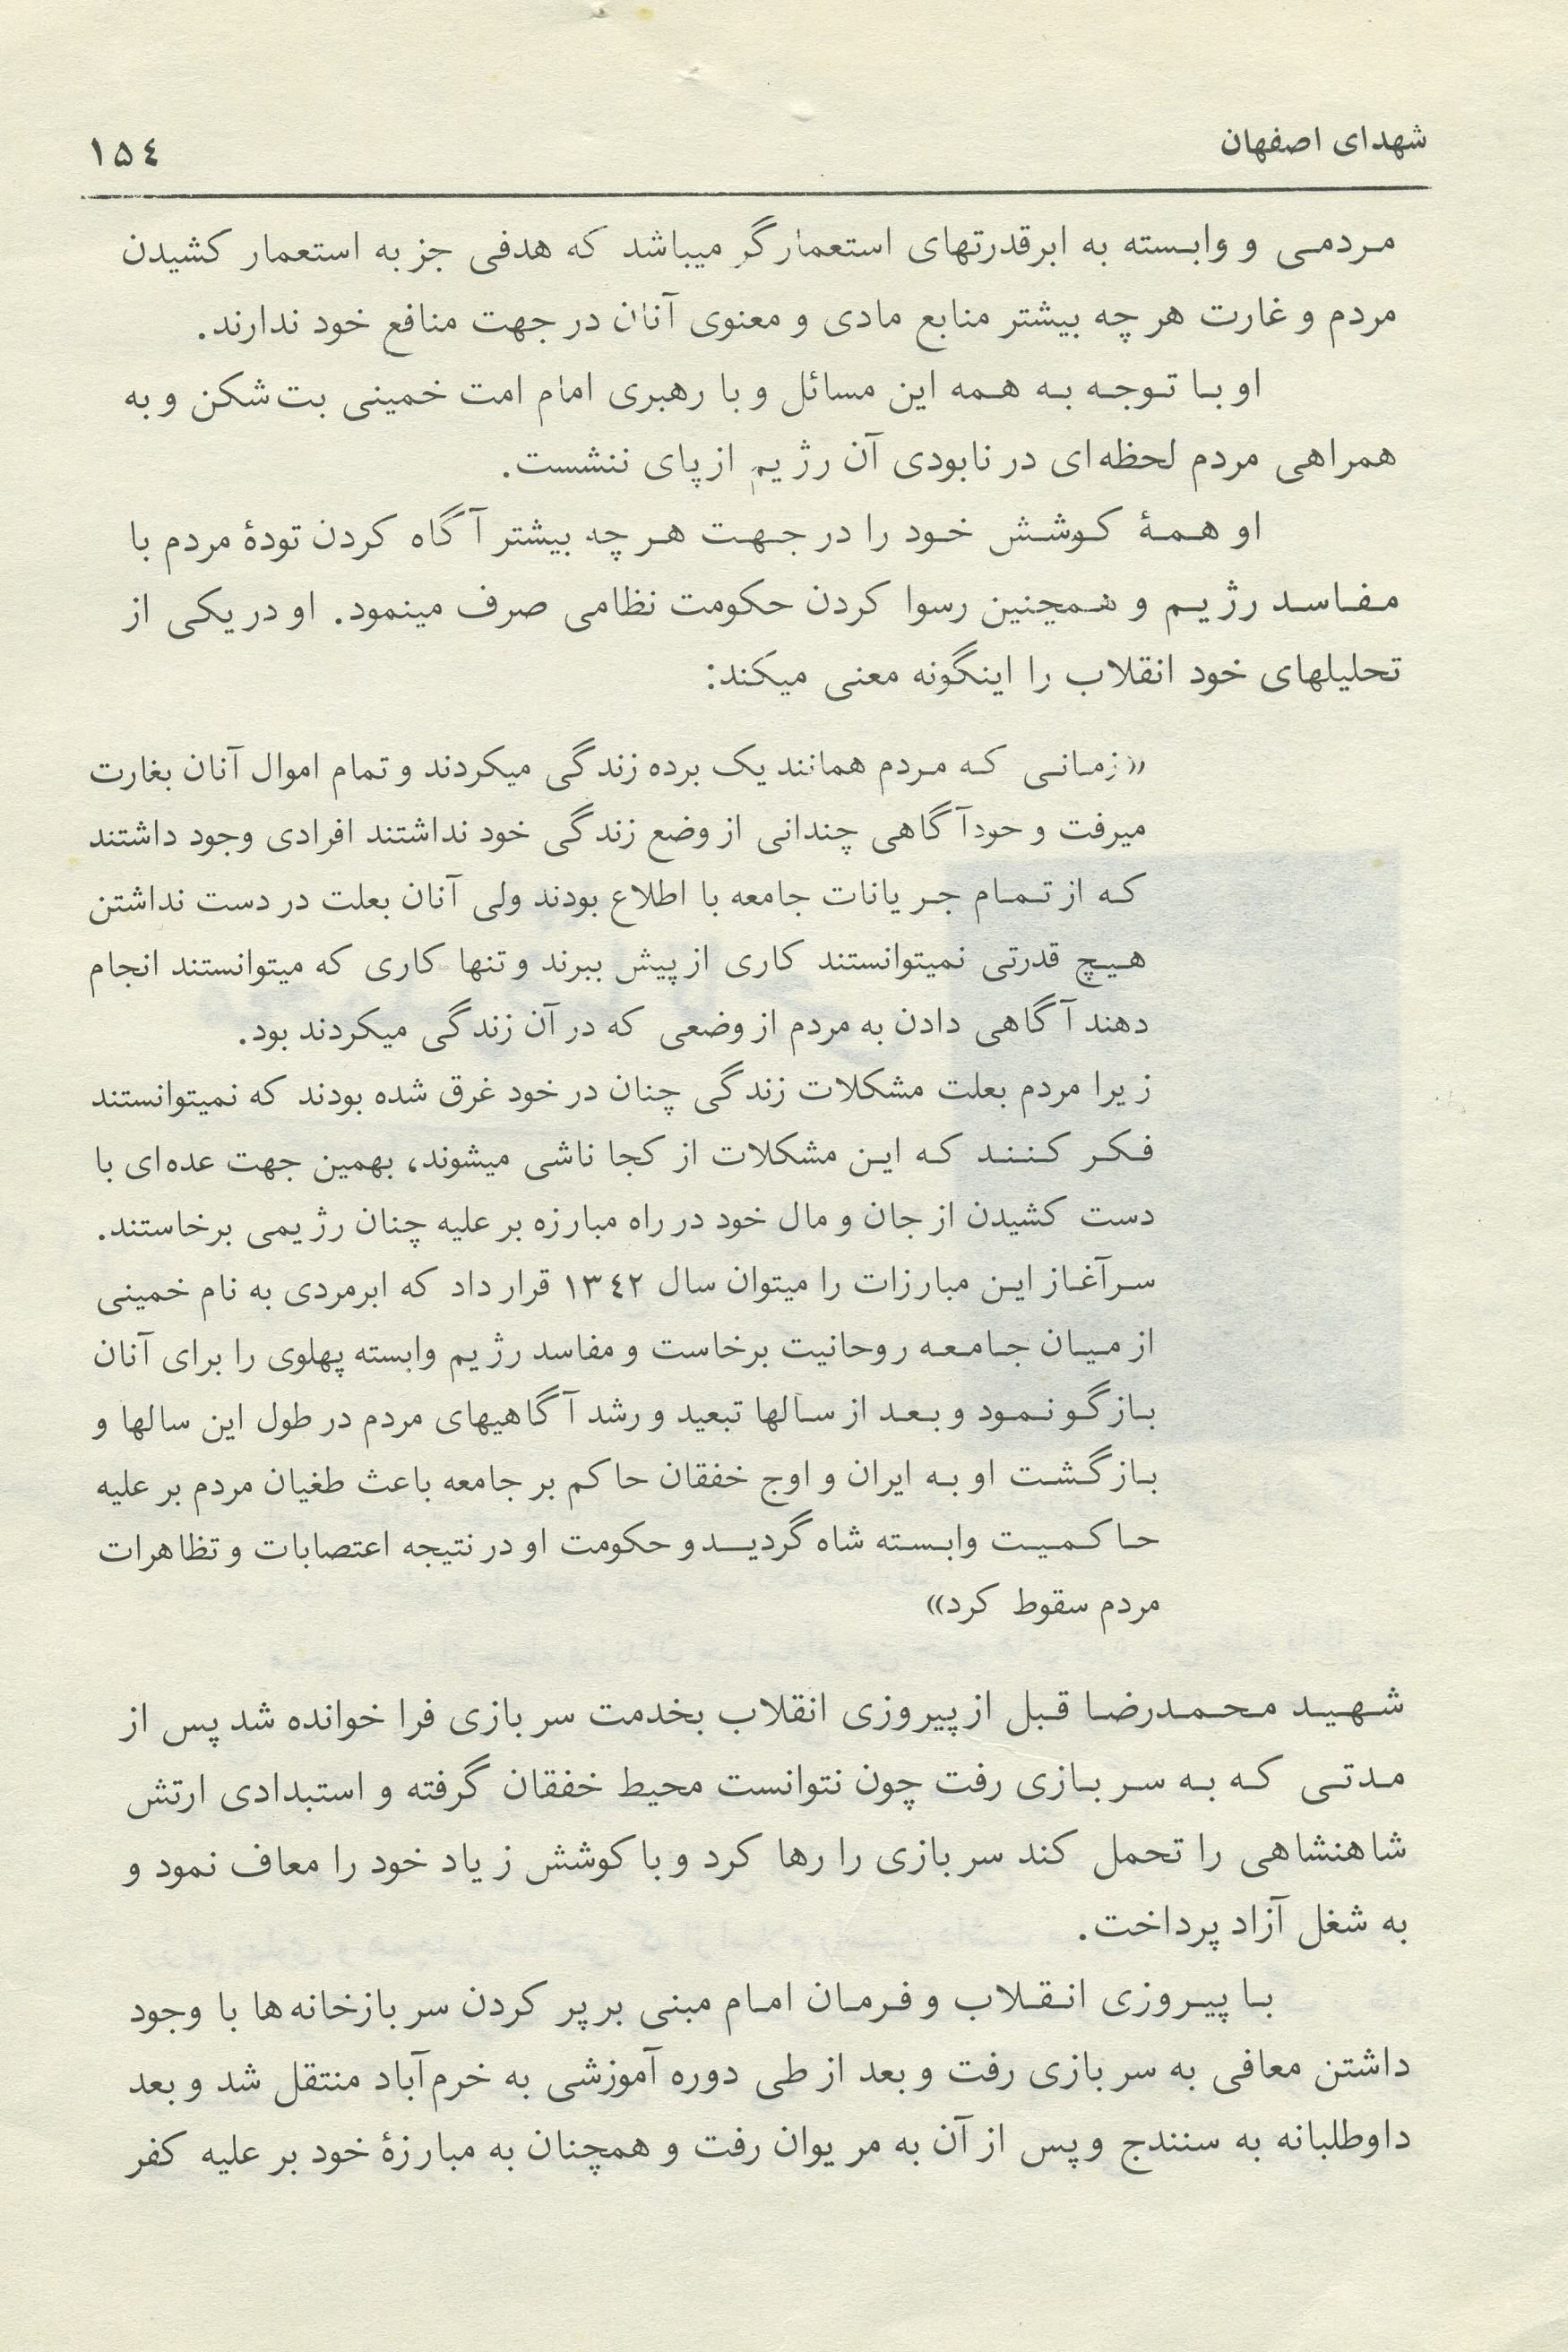 شهدای اصفهان
١٥٤
مردمی و وابسته به ابرقدرتهای استعمارگر میباشد که هدفی جز به استعمار کشیدن
مردم و غارت هر چه بیشتر منابع مادی و معنوی آنان در جهت منافع خود ندارند.
او با توجه به همه این مسائل و با رهبری امام امت خمینی بت‌شکن و به
همراهی مردم لحظه‌ای در نابودی آن رژیم از پای ننشست.
او همهٔ کوشش خود را در جهت هر چه بیشتر آگاه کردن تودهٔ مردم با
مفاسد رژیم و همچنین رسوا کردن حکومت نظامی صرف مینمود. او در یکی از
تحلیلهای خود انقلاب را اینگونه معنی میکند:
«زمانی که مردم همانند یک برده زندگی میکردند و تمام اموال آنان بغارت
میرفت و خودآگاهی چندانی از وضع زندگی خود نداشتند افرادی وجود داشتند
که از تمام جریانات جامعه با اطلاع بودند ولی آنان بعلت در دست نداشتن
هیچ قدرتی نمیتوانستند کاری از پیش ببرند و تنها کاری که میتوانستند انجام
دهند آگاهی دادن به مردم از وضعی که در آن زندگی میکردند بود.
زیرا مردم بعلت مشکلات زندگی چنان در خود غرق شده بودند که نمیتوانستند
فکر کنند که این مشکلات از کجا ناشی میشوند، بهمین جهت عده‌ای با
دست کشیدن از جان و مال خود در راه مبارزه بر علیه چنان رژیمی برخاستند.
سرآغاز این مبارزات را میتوان سال ١٣٤٢ قرار داد که ابرمردی به نام خمینی
از میان جامعه روحانیت برخاست و مفاسد رژیم وابسته پهلوی را برای آنان
بازگو نمود و بعد از سالها تبعید و رشد آگاهیهای مردم در طول این سالها و
بازگشت او به ایران و اوج خفقان حاکم بر جامعه باعث طغیان مردم بر علیه
حاکمیت وابسته شاه گردید و حکومت او در نتیجه اعتصابات و تظاهرات
مردم سقوط کرد»
شهید محمدرضا قبل از پیروزی انقلاب بخدمت سربازی فرا خوانده شد پس از
مدتی که به سربازی رفت چون نتوانست محیط خفقان گرفته و استبدادی ارتش
شاهنشاهی را تحمل کند سربازی را رها کرد و با کوشش زیاد خود را معاف نمود و
به شغل آزاد پرداخت.
با پیروزی انقلاب و فرمان امام مبنی بر پر کردن سربازخانه‌ها با وجود
داشتن معافی به سربازی رفت و بعد از طی دوره آموزشی به خرم‌آباد منتقل شد و بعد
داوطلبانه به سنندج و پس از آن به مریوان رفت و همچنان به مبارزهٔ خود بر علیه کفر